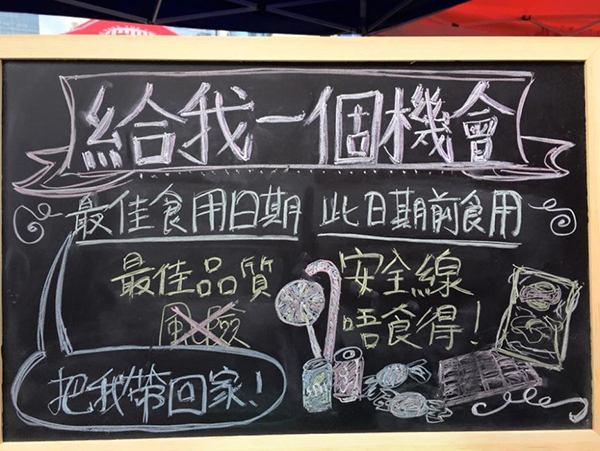 給我一個機會
最佳食用日期 此日期前食用
最佳品質 安全線
風險 唔食得!
把我帶回家!